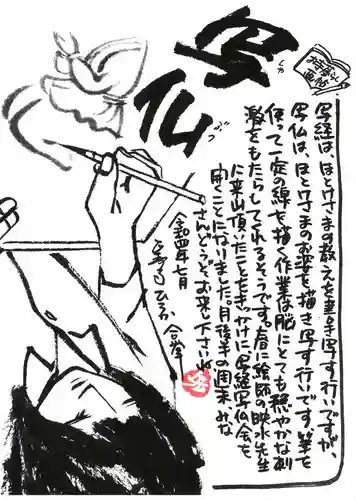 写仏
しゃぶつ
写経は、ほとけさまの教えを書き写す行いですが、
写仏は、ほとけさまのお姿を描き写す行いです。筆を
使って一定の線を描く作業は脳にとても穏やかな刺
激をもたらしてくれるそうです。春に絵師の映水先生
に来山頂いたことをきっかけに写経写仏会を
開くことになりました。月後半の週末、みな
さんどうぞお来し下さいね
令和四年七月
合掌